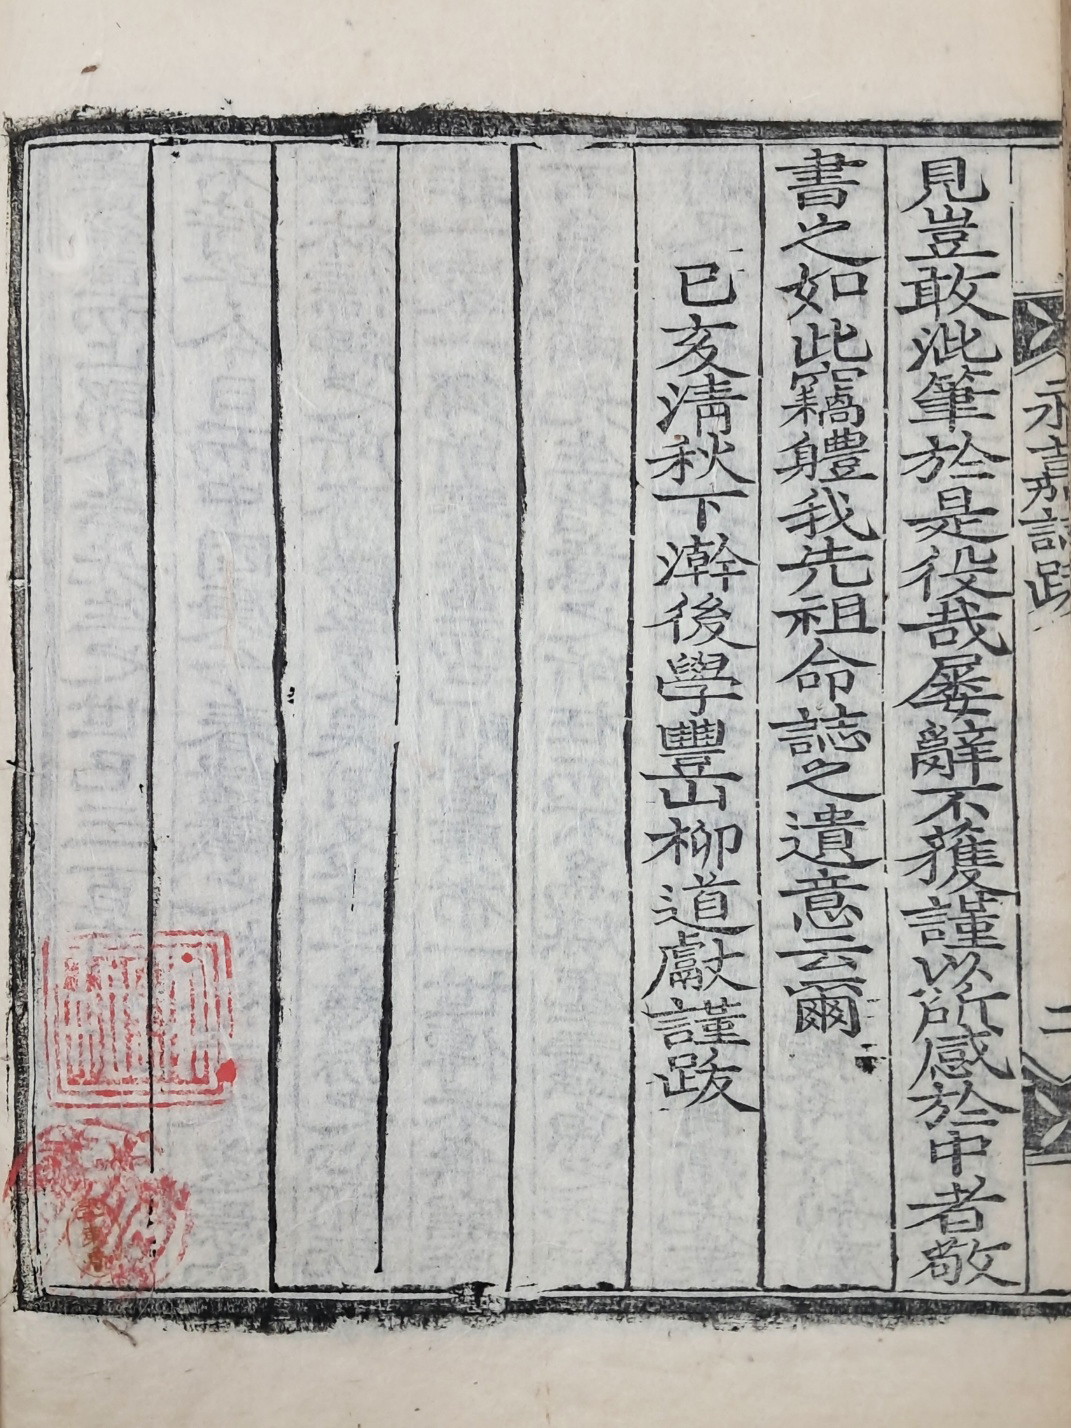 永嘉誌跋
二
見豈敢泚筆於是役哉屢辭不獲謹以所感於中者敬
書之如此竊體我先祖命誌之遺意云爾
已亥淸秋下澣後學豐山柳道獻謹跋